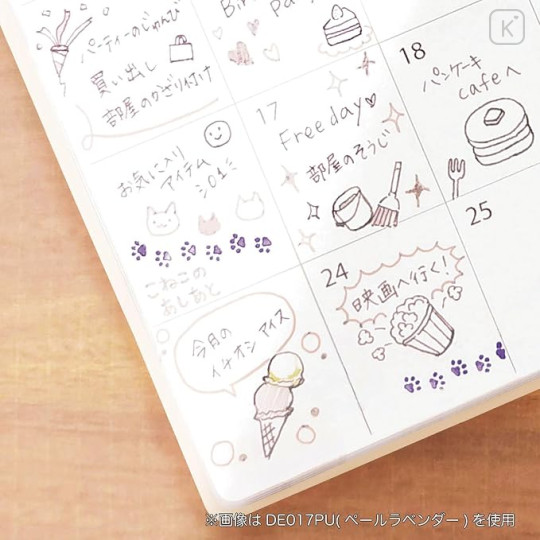 パーティーのじゅんび
買い出し
部屋のかざり付け
18
パンケーキ
cafeへ
17
Free day
部屋のそうじ
お気に入り
アイテム
25
こねこの
あしあと
24
映画へ行く!
今月の
イチオシ アイス
※画像は DE017PU( ペールラベンダー ) を使用
K